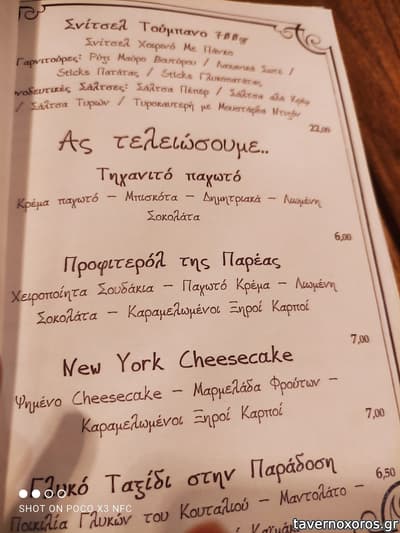 Σνίτσελ Τούμπανο 700gr
Σνίτσελ Χοιρινό Με Πάνκο
Γαρνιτούρες: Ρύζι Μαύρο Βουτύρου / Λαχανικά Σωτέ /
Sticks Πατάτας / Sticks Γλυκοπατάτας
νοδευτικές Σάλτσες: Σάλτσα Πέπερ / Σάλτσα αλα
/ Σάλτσα Τυρών / Τυροκαυτερή με Μουστάρδα Ντιζόν
22,00
Ας τελειώσουμε..
Τηγανιτό παγωτό
Κρέμα παγωτό – Μπισκότα – Δημητριακά – Λιωμένη
Σοκολάτα
6,00
Προφιτερόλ της Παρέας
Χειροποίητα Σουδάκια – Παγωτό Κρέμα – Λιωμένη
Σοκολάτα – Καραμελωμένοι Ξηροί Καρποί
7,00
New York Cheesecake
Ψημένο Cheesecake – Μαρμελάδα Φρούτων –
Καραμελωμένοι Ξηροί Καρποί
7,00
Γλυκό Ταξίδι στην Παράδοση
6,50
Ποικιλία Γλυκών του Κουταλιού – Μαντολάτο –
Καϊμάκι
SHOT ON POCO X3 NFC
tavernoxoros.gr